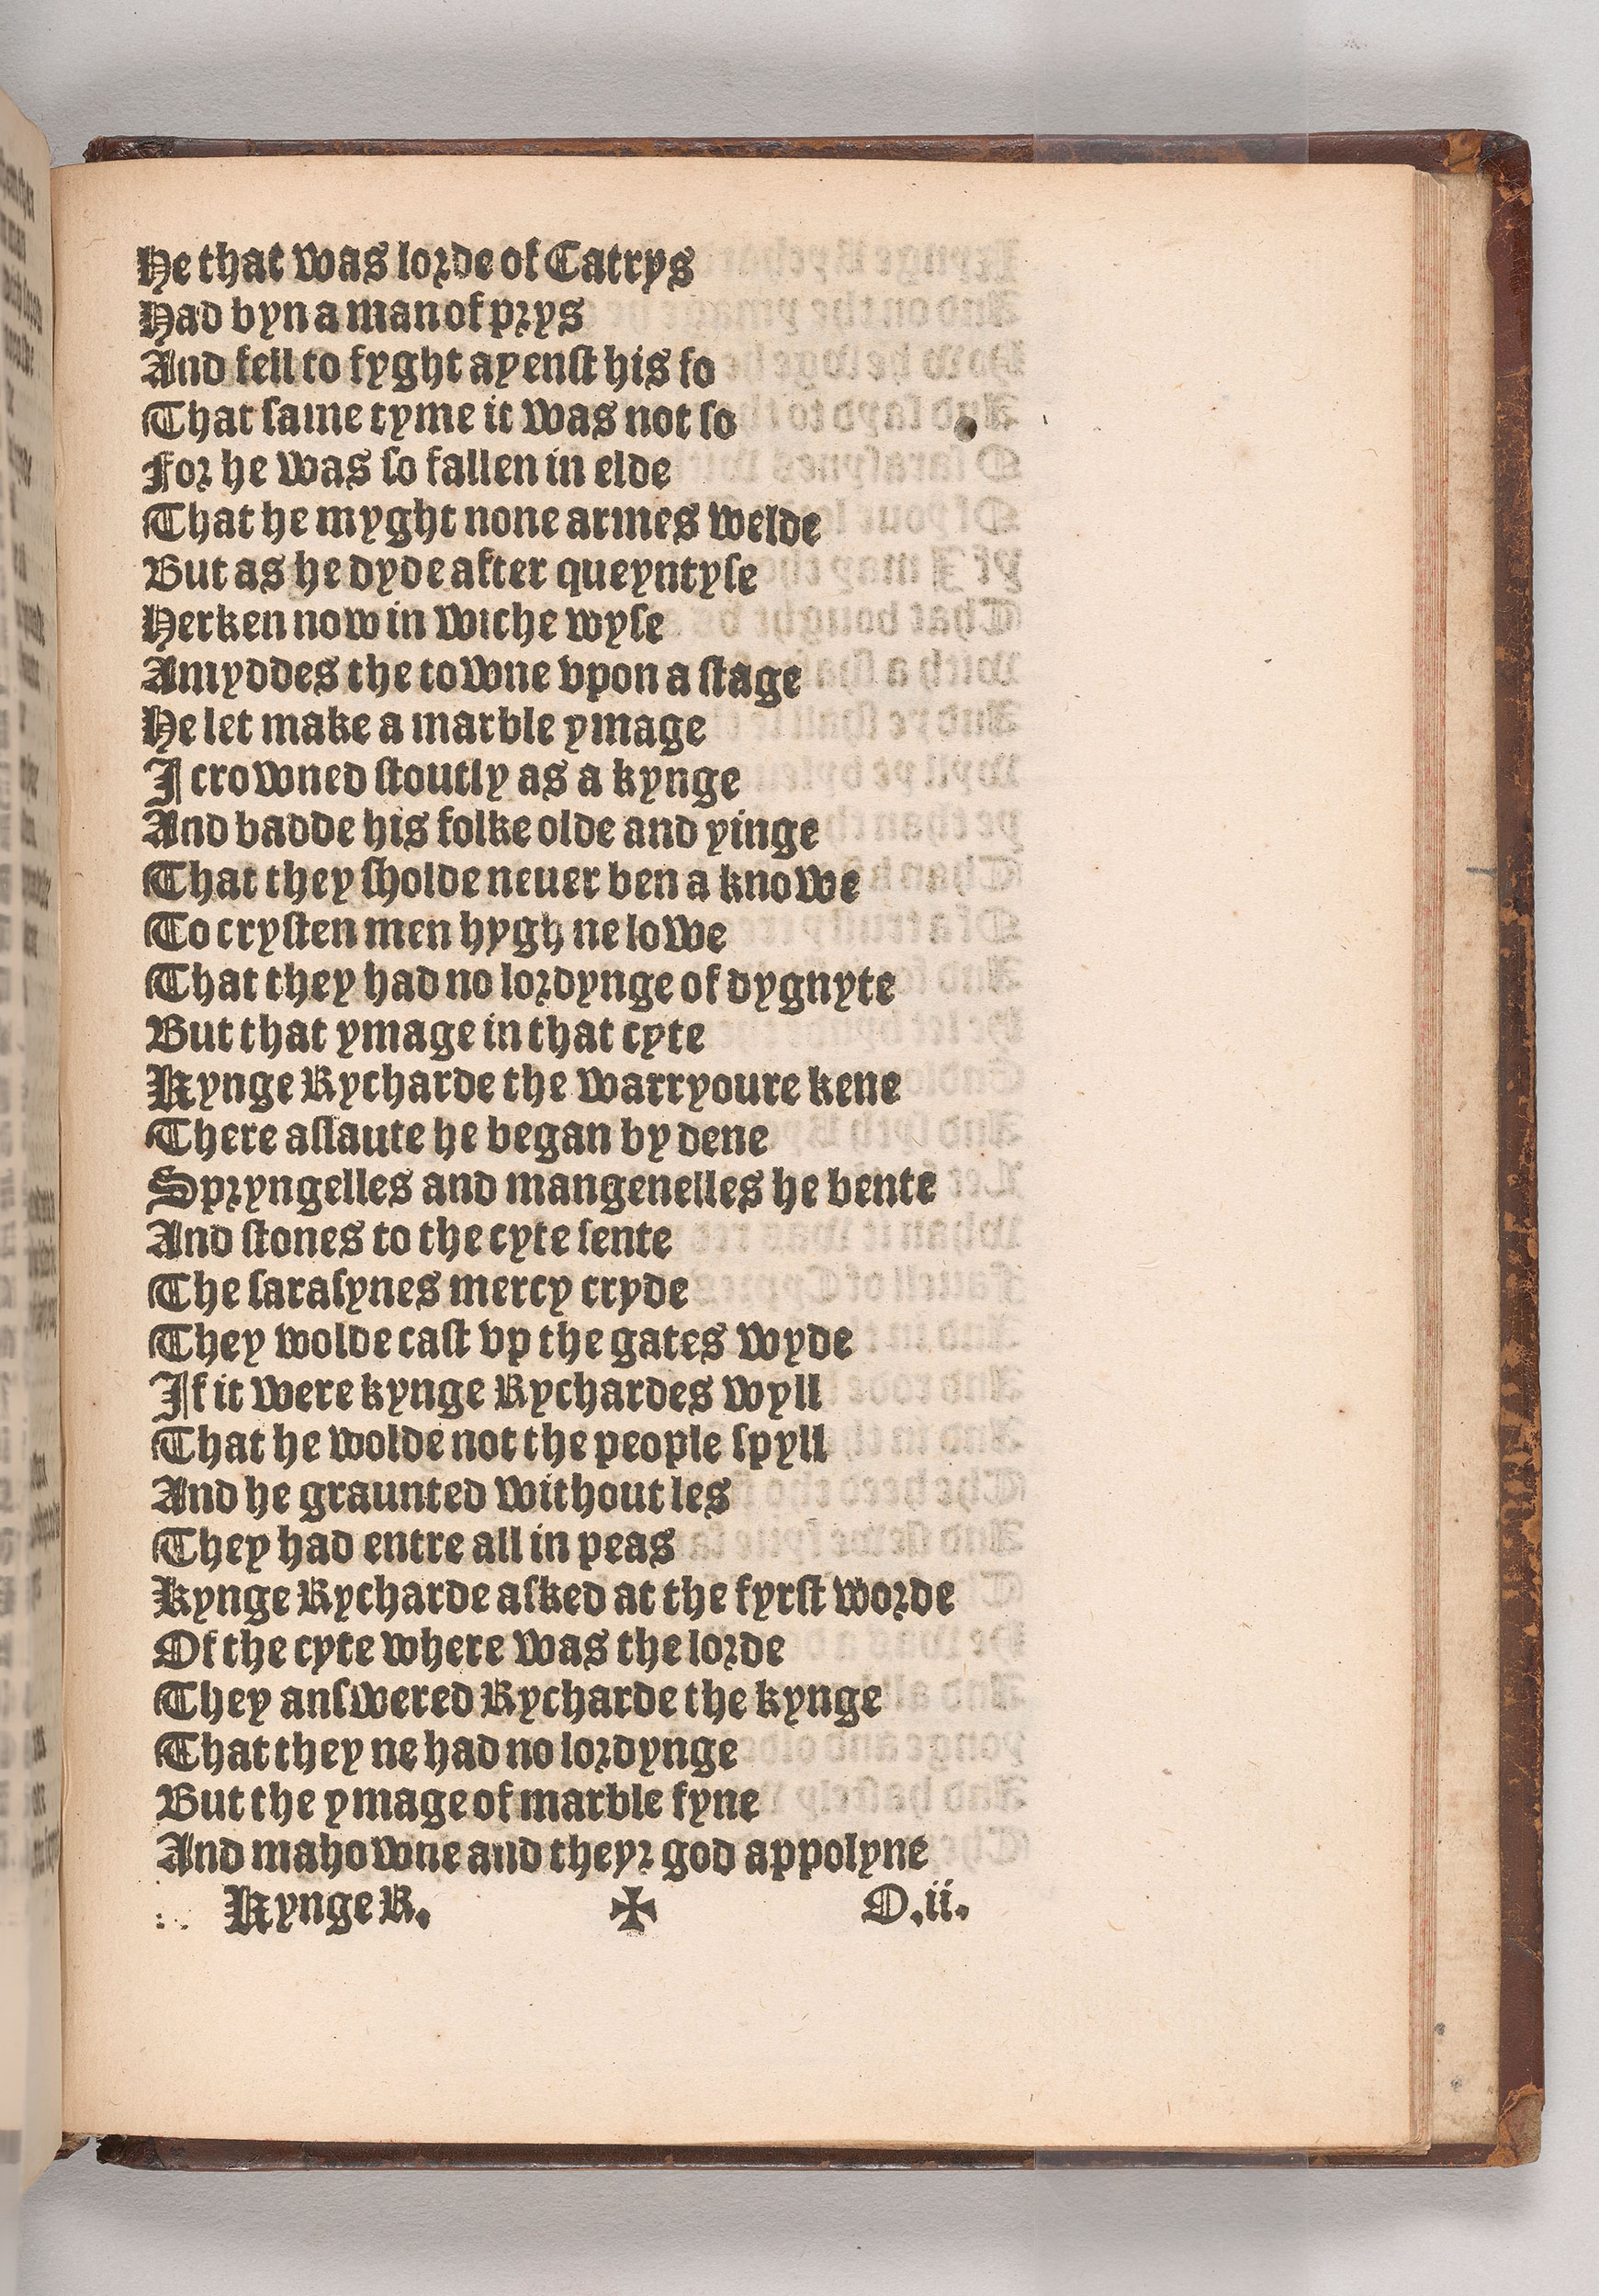 He that was lorde of Catrys
Had byn a man of prys
And fell to fyght ayenst his fo
That same tyme it was not so
For he was so fallen in elde
That he myght none armes welde
But as he dyde after queyntyse
Herken now in wiche wyse
Amyddes the towne vpon a stage
He let make a marble ymage
I crowned stoutly as a kynge
And badde his folke olde and yinge
That they sholde neuer ben a knowe
To crysten men hygh ne lowe
That they had no lordynge of dygnyte
But that ymage in that cyte
Kynge Rycharde the warryoure kene
There assaute he began by dene
Spryngelles and mangenelles he bente
And stones to the cyte sente
The sarasynes mercy cryde
They wolde cast vp the gates wyde
If it were kynge Rychardes wyll
That he wolde not the people spyll
And he graunted without les
They had entre all in peas
Kynge Rycharde asked at the fyrst worde
Of the cyte where was the lorde
They answered Rycharde the kynge
That they ne had no lordynge
But the ymage of marble fyne
And mahowne and theyr god appolyne
Kynge R. ✠ O.ii.